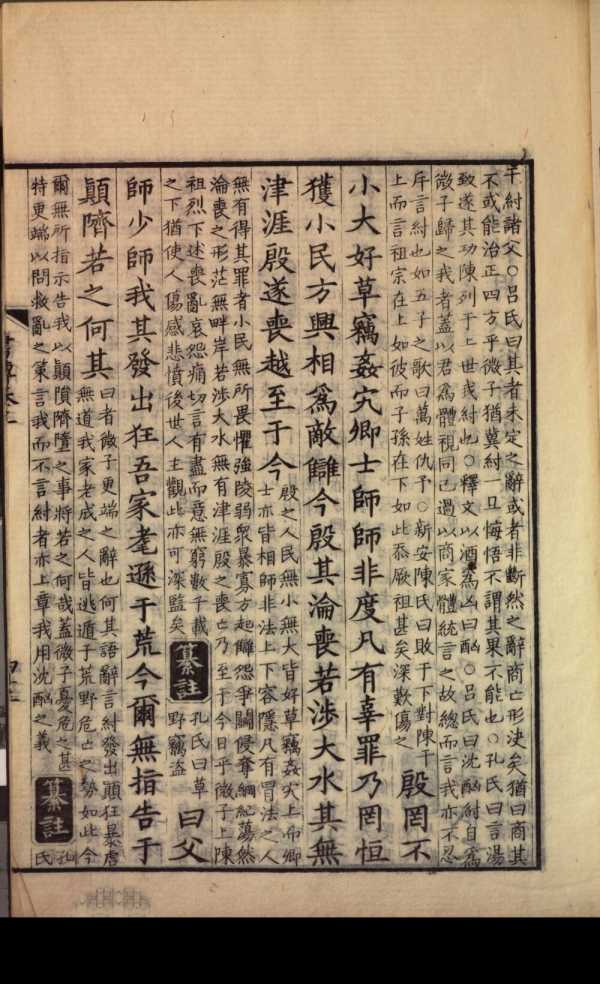 干紂諸父○呂氏曰其者未定之辭或者非斷然之辭商亡形決矣猶曰商其
不或能治正四方乎微子猶冀紂一旦悔悟不謂其果不能也○孔氏曰言湯
致遂其功陳列于上世或紂也○釋文以酒爲凶曰酗○呂氏曰沈酗紂自爲
微子歸之我者蓋以君爲體視同己過以商家體統言之故總而言我亦不忍
斥言紂也如五子之歌曰萬姓仇予○新安陳氏曰敗于下對陳于
上而言祖宗在上如彼而子孫在下如此忝厥祖甚矣深歎傷之
殷罔不
小大好草竊姦宄卿士師師非度凡有辜罪乃罔恒
獲小民方興相爲敵讎今殷其淪喪若涉大水其無
津涯殷遂喪越至于今
殷之人民無小無大皆好草竊姦宄上而卿
士亦皆相師非法上下容隱凡有冒法之人
無有得其罪者小民無所畏懼強陵弱衆暴寡方起讎怨爭鬭侵奪綱紀蕩然
淪喪之形茫無畔岸若涉大水無有津涯殷之喪亡乃至于今日乎微子上陳
祖烈下述喪亂哀怨痛切言有盡而意無窮數千載
之下猶使人傷感悲憤後世人主觀此亦可深監矣
纂註
孔氏曰草
野竊盜
曰父
師少師我其發出狂吾家耄遜于荒今爾無指告于
顚隮若之何其
曰者微子更端之辭也何其語辭言紂發出顚狂暴虐
無道我家老成之人皆逃遁于荒野危亡之勢如此今
爾無所指示告我以顚隕隮墜之事將若之何哉蓋微子憂危之甚
特更端以問救亂之策言我而不言紂者亦上章我用沈酗之義
纂註
孔
氏